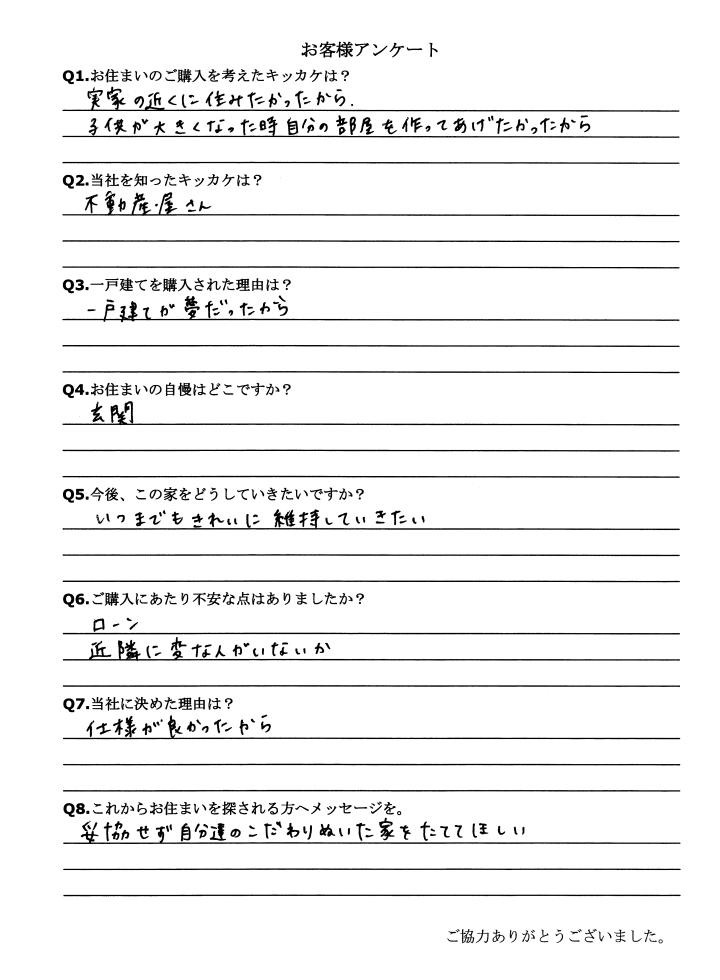 お客様アンケート
Q1.お住まいのご購入を考えたキッカケは？
実家の近くに住みたかったから.
子供が大きくなった時自分の部屋を作ってあげたかったから
Q2.当社を知ったキッカケは？
不動産屋さん
Q3.一戸建てを購入された理由は？
一戸建てが夢だったから
Q4.お住まいの自慢はどこですか？
玄関
Q5.今後、この家をどうしていきたいですか？
いつまでもきれいに維持していきたい
Q6.ご購入にあたり不安な点はありましたか？
ローン
近隣に変な人がいないか
Q7.当社に決めた理由は？
仕様が良かったから
Q8.これからお住まいを探される方へメッセージを。
妥協せず自分達のこだわりぬいた家をたててほしい
ご協力ありがとうございました。